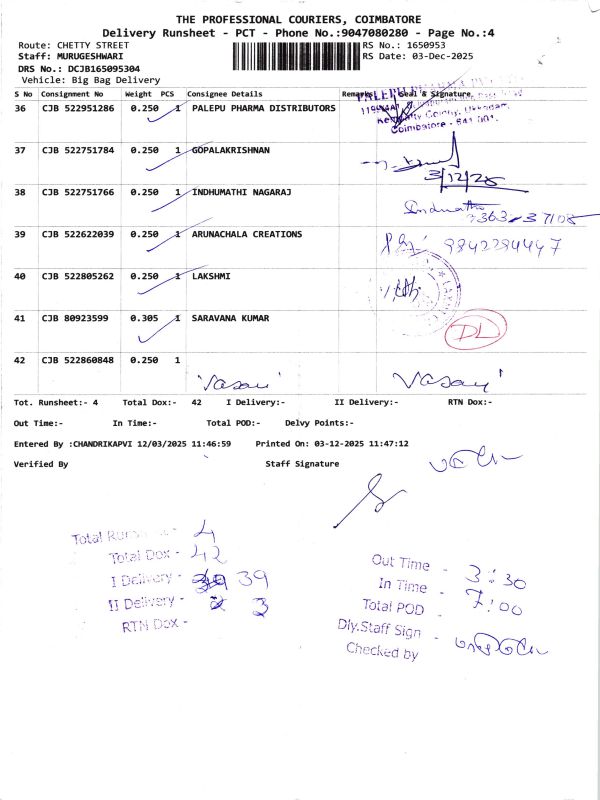 THE PROFESSIONAL COURIERS, COIMBATORE
Delivery Runsheet - PCT - Phone No.:9047080280 - Page No.:4
Route: CHETTY STREET RS No.: 1650953
Staff: MURUGESHWARI RS Date: 03-Dec-2025
DRS No.: DCJB165095304
Vehicle: Big Bag Delivery
S No Consignment No Weight PCS Consignee Details Remarks Seal & Signature
36 CJB 522951286 0.250 1 PALEPU PHARMA DISTRIBUTORS
Coimbatore - 641 001.
37 CJB 522751784 0.250 1 GOPALAKRISHNAN
3/12/25
38 CJB 522751766 0.250 1 INDHUMATHI NAGARAJ
39 CJB 522622039 0.250 1 ARUNACHALA CREATIONS 9842294447
40 CJB 522805262 0.250 1 LAKSHMI
41 CJB 80923599 0.305 1 SARAVANA KUMAR DL
42 CJB 522860848 0.250 1
'Vasavi' 'Vasavi'
Tot. Runsheet:- 4 Total Dox:- 42 I Delivery:- II Delivery:- RTN Dox:-
Out Time:- In Time:- Total POD:- Delvy Points:-
Entered By :CHANDRIKAPVI 12/03/2025 11:46:59 Printed On: 03-12-2025 11:47:12
Verified By Staff Signature
Total - 4
Total Dox - 42
I Delivery - 39
II Delivery - 3
RTN Dox -
Out Time - 3:30
In Time - 7:00
Total POD -
Dly.Staff Sign -
Checked by